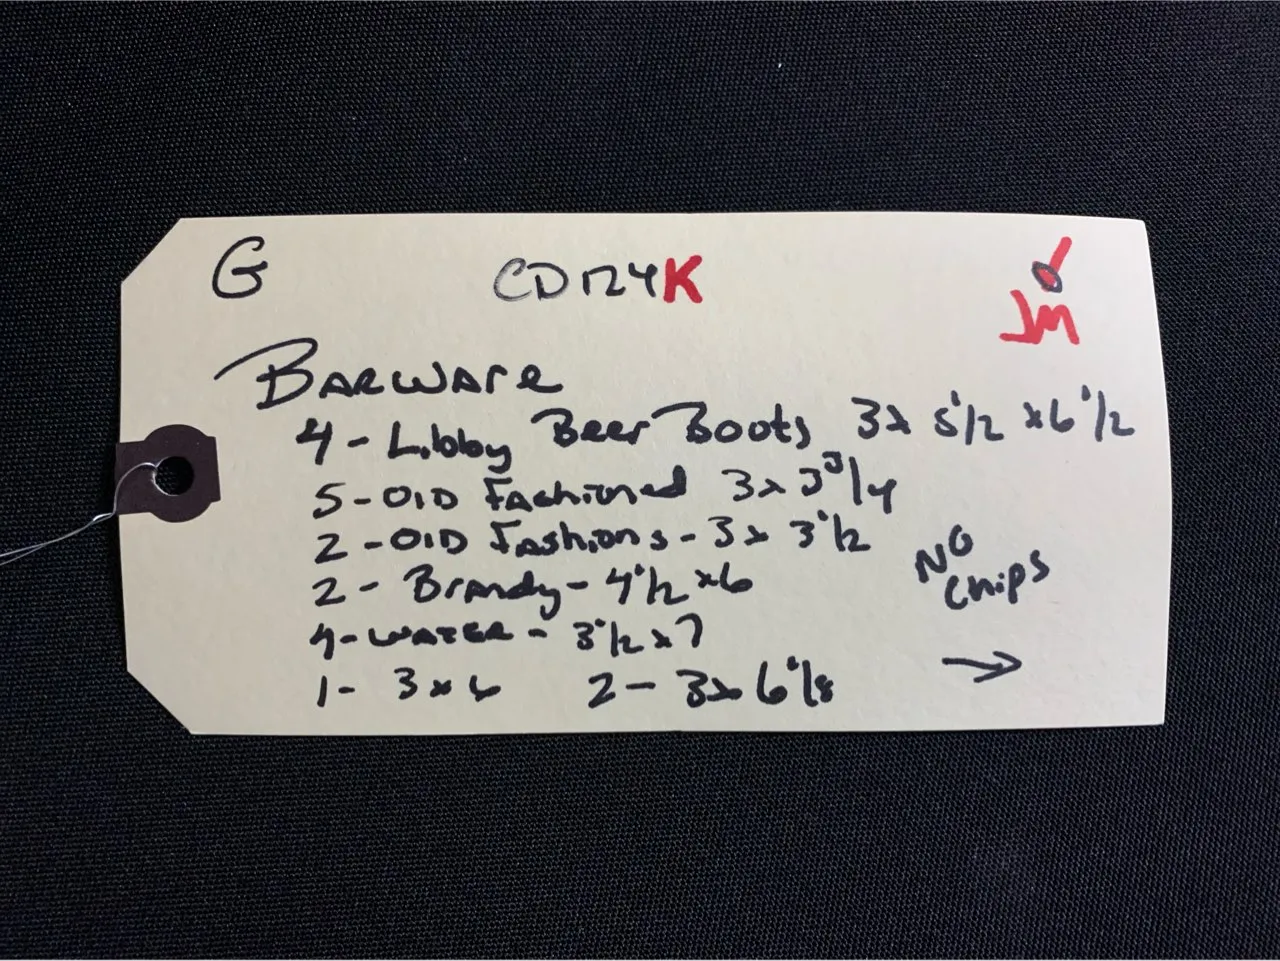 G CD124K
JM
Barware
4 - Libby Beer Boots 3 x 5 1/2 x 6 1/2
5 - Old Fachioned 3 x 3 3/4
2 - Old Fashions - 3 x 3 1/2
2 - Brandy - 4 1/2 x 6
4 - Water - 3 1/2 x 7
1 - 3 x 6 2 - 3 x 6 1/8
No
Chips
→